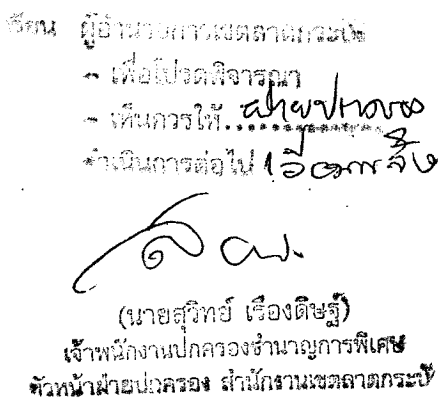 เรียน ผู้อำนวยการเขตลาดกระบัง
- เพื่อโปรดพิจารณา
- เห็นควรให้..ฝ่ายปกครอง
ดำเนินการต่อไป
(นายสุวิทย์ เรืองดิษฐ์)
เจ้าพนักงานปกครองชำนาญการพิเศษ
หัวหน้าฝ่ายปกครอง สำนักงานเขตลาดกระบัง